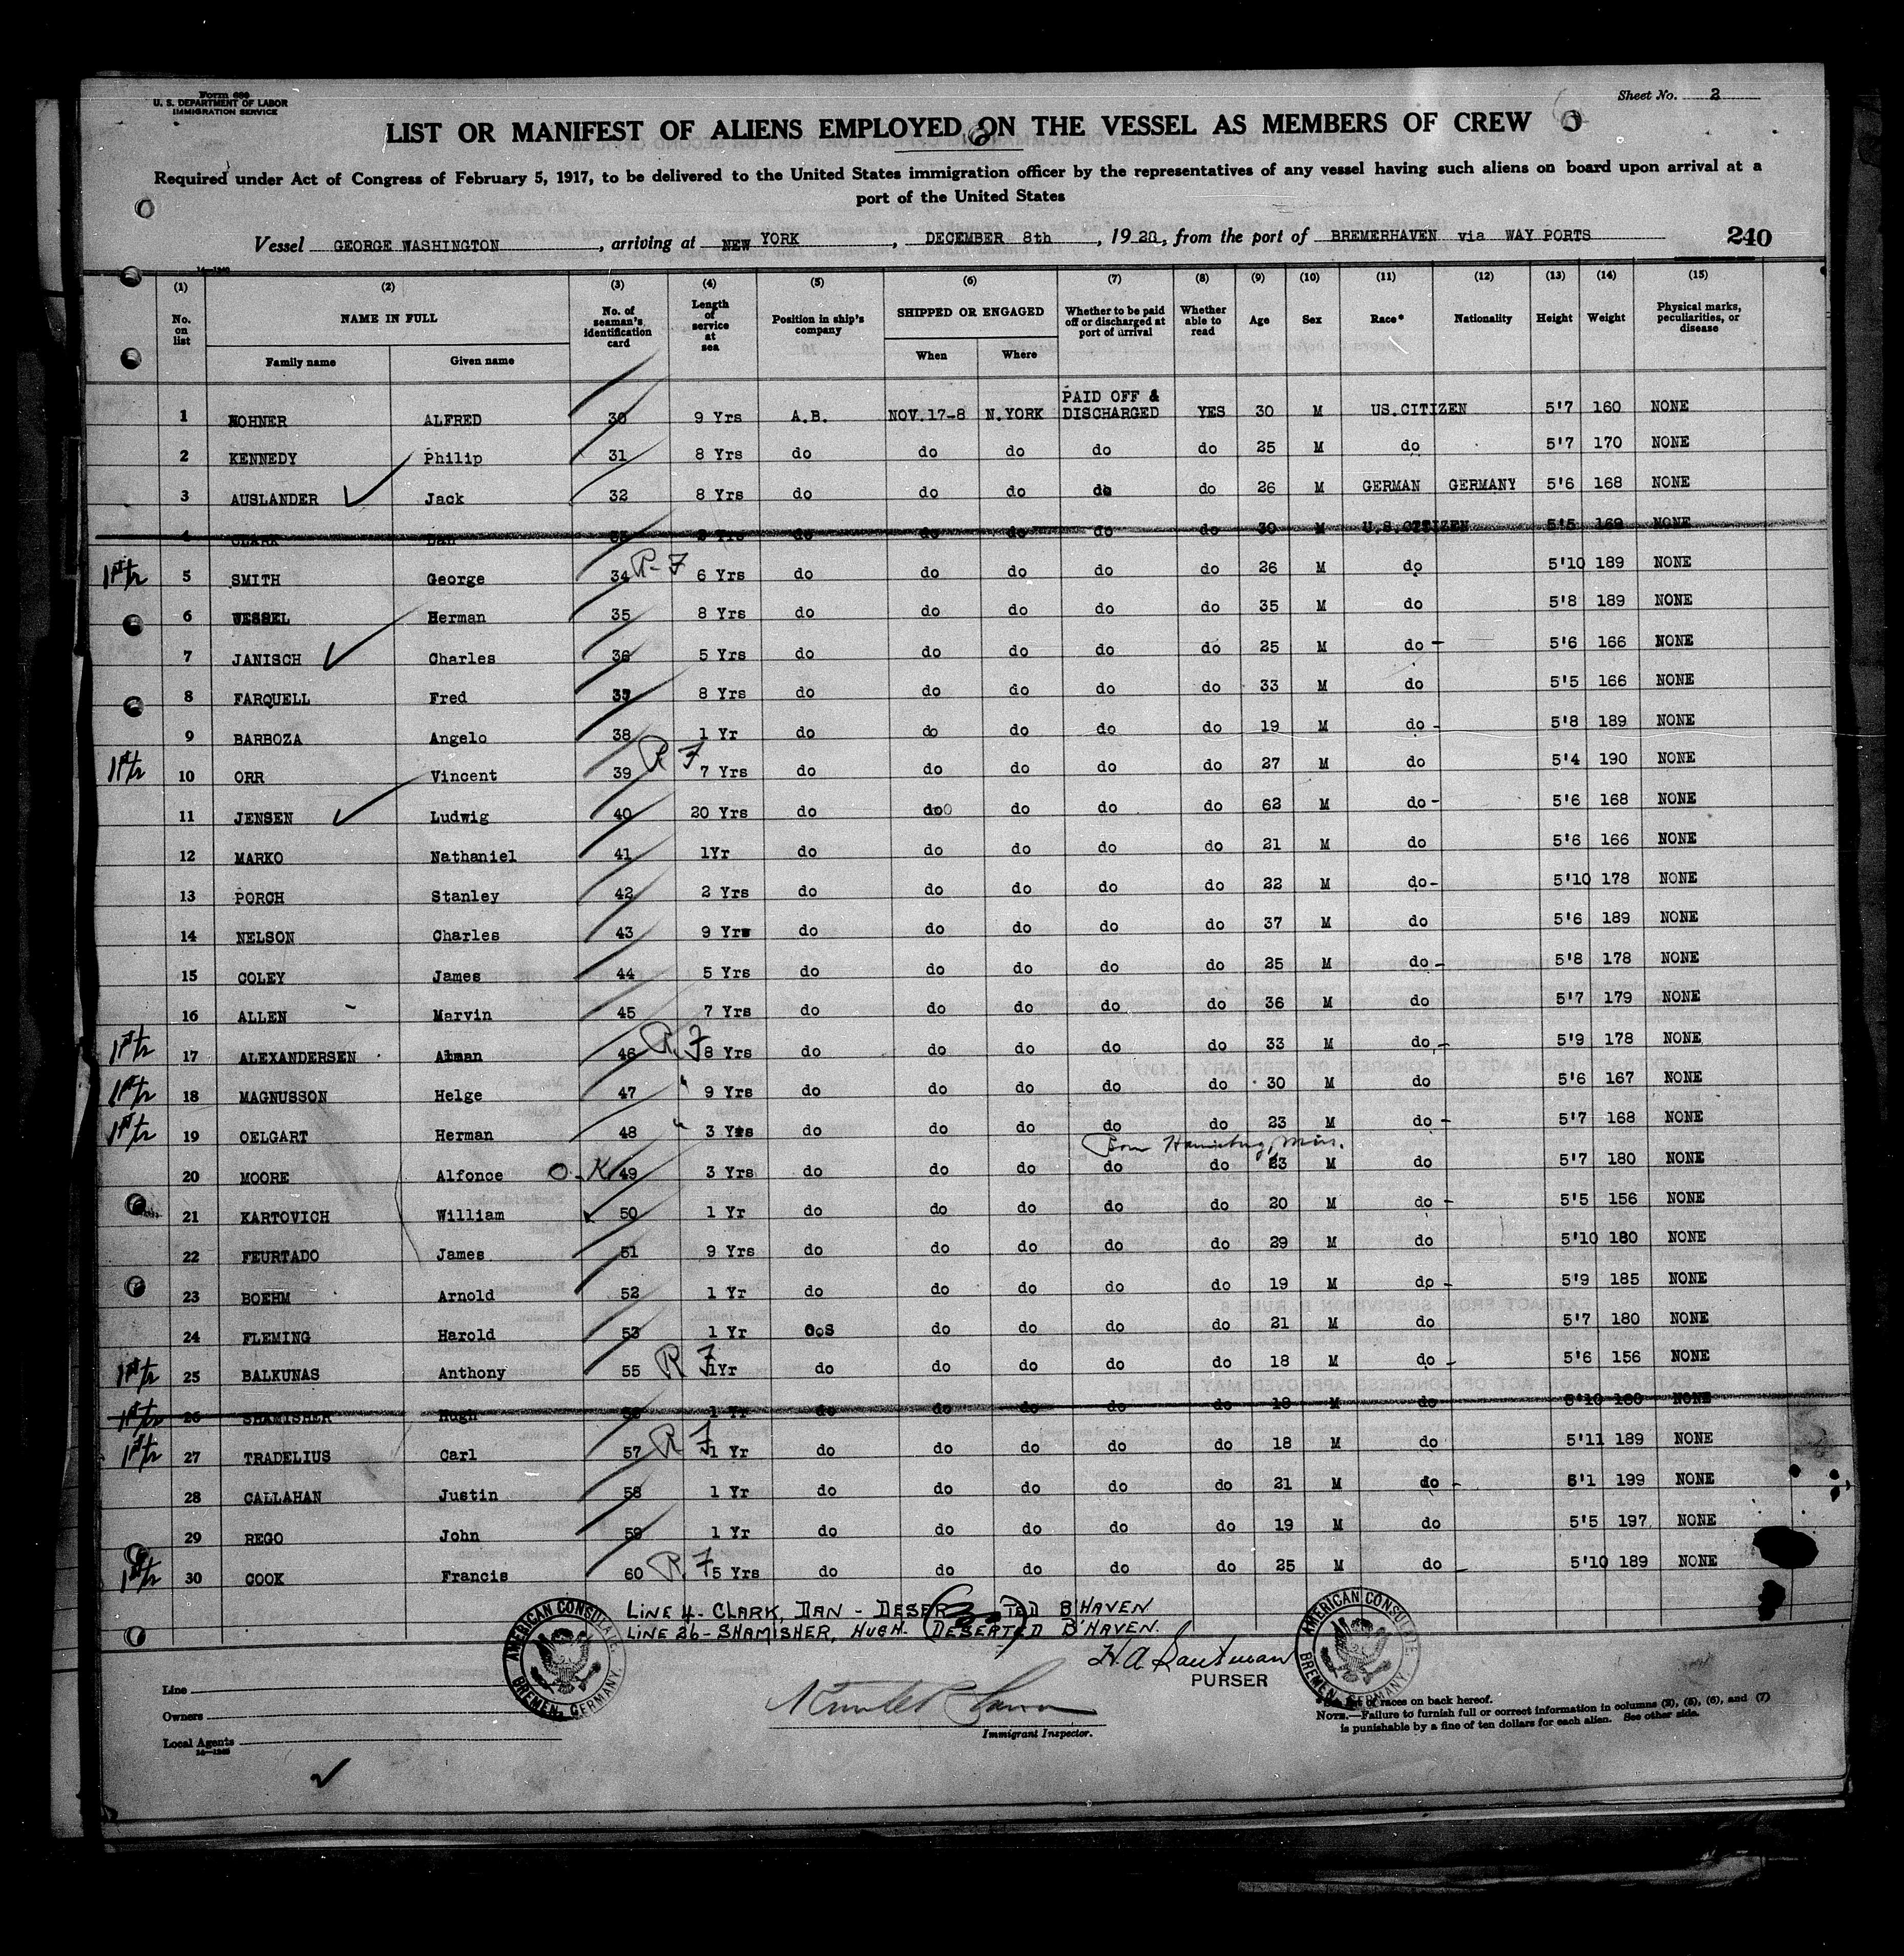 Form 680
U. S. DEPARTMENT OF LABOR
IMMIGRATION SERVICE
Sheet No. 2
LIST OR MANIFEST OF ALIENS EMPLOYED ON THE VESSEL AS MEMBERS OF CREW
Required under Act of Congress of February 5, 1917, to be delivered to the United States immigration officer by the representatives of any vessel having such aliens on board upon arrival at a
port of the United States
Vessel GEORGE WASHINGTON, arriving at NEW YORK, DECEMBER 8th, 1920, from the port of BREMERHAVEN via WAY PORTS 240
(1) (2) (3) (4) (5) (6) (7) (8) (9) (10) (11) (12) (13) (14) (15)
No. on list NAME IN FULL Family name Given name No. of seaman's identification card Length of service at sea Position in ship's company SHIPPED OR ENGAGED When Where Whether to be paid off or discharged at port of arrival Whether able to read Age Sex Race* Nationality Height Weight Physical marks, peculiarities, or disease
1 NOHNER ALFRED 30 9 Yrs A.B. NOV.17-8 N.YORK PAID OFF & DISCHARGED YES 30 M US.CITIZEN 5'7 160 NONE
2 KENNEDY Philip 31 8 Yrs do do do do do 25 M do 5'7 170 NONE
3 AUSLANDER Jack 32 8 Yrs do do do do do 26 M GERMAN GERMANY 5'6 168 NONE
4 CLARK Dan do do do do do 30 M U.S.CITIZEN 5'5 169 NONE
5 SMITH George 34 R-F 6 Yrs do do do do do 26 M do 5'10 189 NONE
6 WESSEL Herman 35 8 Yrs do do do do do 35 M do 5'8 189 NONE
7 JANISCH Charles 36 5 Yrs do do do do do 25 M do - 5'6 166 NONE
8 FARQUELL Fred 37 8 Yrs do do do do do 33 M do 5'5 166 NONE
9 BARBOZA Angelo 38 1 Yr do do do do do 19 M do - 5'8 189 NONE
10 ORR Vincent 39 R F 7 Yrs do do do do do 27 M do 5'4 190 NONE
11 JENSEN Ludwig 40 20 Yrs do do do do do 62 M do - 5'6 168 NONE
12 MARKO Nathaniel 41 1Yr do do do do do 21 M do 5'6 166 NONE
13 PORCH Stanley 42 2 Yrs do do do do do 22 M do - 5'10 178 NONE
14 NELSON Charles 43 9 Yrs do do do do do 37 M do 5'6 189 NONE
15 COLEY James 44 5 Yrs do do do do do 25 M do - 5'8 178 NONE
16 ALLEN Marvin 45 7 Yrs do do do do do 36 M do 5'7 179 NONE
17 ALEXANDERSEN 46 R F 8 Yrs do do do do do 33 M do - 5'9 178 NONE
18 MAGNUSSON Helge 47 " 9 Yrs do do do do do 30 M do 5'6 167 NONE
19 OELGART Herman 48 " 3 Yrs do do do do do 23 M do - 5'7 168 NONE
20 MOORE Alfonce O.K 49 3 Yrs do do do do do 23 M do 5'7 180 NONE
21 KARTOVICH William 50 1 Yr do do do do do 20 M do - 5'5 156 NONE
22 FEURTADO James 51 9 Yrs do do do do do 29 M do 5'10 180 NONE
23 BOEHM Arnold 52 1 Yr do do do do do 19 M do - 5'9 185 NONE
24 FLEMING Harold 53 1 Yr O.S do do do do 21 M do 5'7 180 NONE
25 BALKUNAS Anthony 55 R F 1Yr do do do do do 18 M do - 5'6 156 NONE
26 SHAMISHER Hugh 1 Yr do do do do do 18 M do 5'10 NONE
27 TRADELIUS Carl 57 R F 1 Yr do do do do do 18 M do 5'11 189 NONE
28 CALLAHAN Justin 58 1 Yr do do do do do 21 M do - 6'1 199 NONE
29 REGO John 59 1 Yr do do do do do 19 M do 5'5 197 NONE
30 COOK Francis 60 R F 5 Yrs do do do do do 25 M do - 5'10 189 NONE
LINE 4- CLARK, DAN - DESERTED B'HAVEN
LINE 26- SHAMISHER, HUGH. DESERTED B'HAVEN.
AMERICAN CONSULATE BREMEN, GERMANY.
AMERICAN CONSULATE BREMEN, GERMANY.
PURSER
Line
Owners
Local Agents
14-1240
Immigrant Inspector.
list of races on back hereof.
NOTE.—Failure to furnish full or correct information in columns (2), (5), (6), and (7)
is punishable by a fine of ten dollars for each alien. See other side.